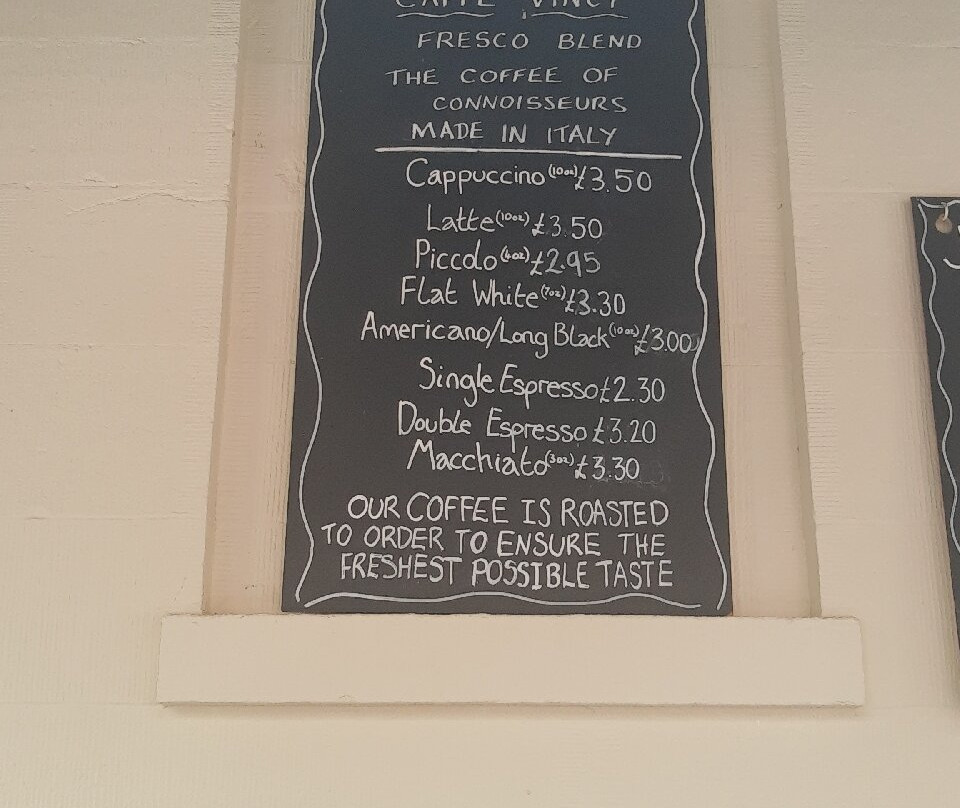 CAFFE VINCI
FRESCO BLEND
THE COFFEE OF
CONNOISSEURS
MADE IN ITALY
Cappuccino (10oz) £3.50
Latte (10oz) £3.50
Piccolo (4oz) £2.95
Flat White (7oz) £3.30
Americano/Long Black (10oz) £3.00
Single Espresso £2.30
Double Espresso £3.20
Macchiato (3oz) £3.30
OUR COFFEE IS ROASTED
TO ORDER TO ENSURE THE
FRESHEST POSSIBLE TASTE